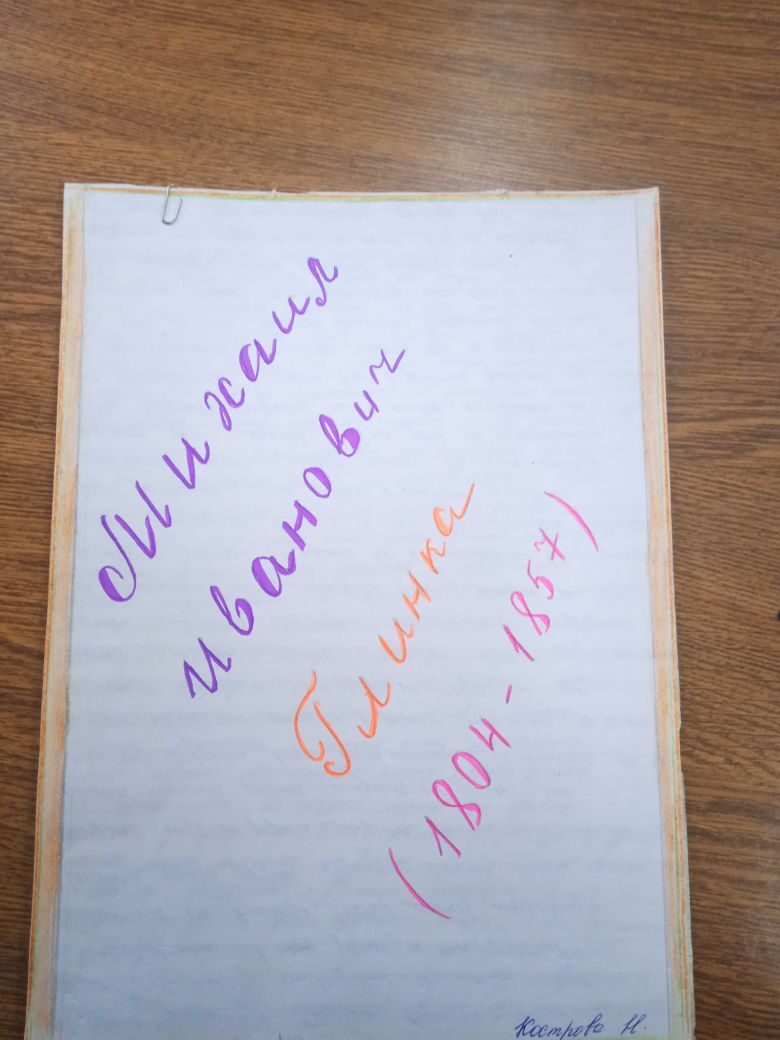 Михаил
иванович
Глинка
(1804-1857)
Кострова Н.